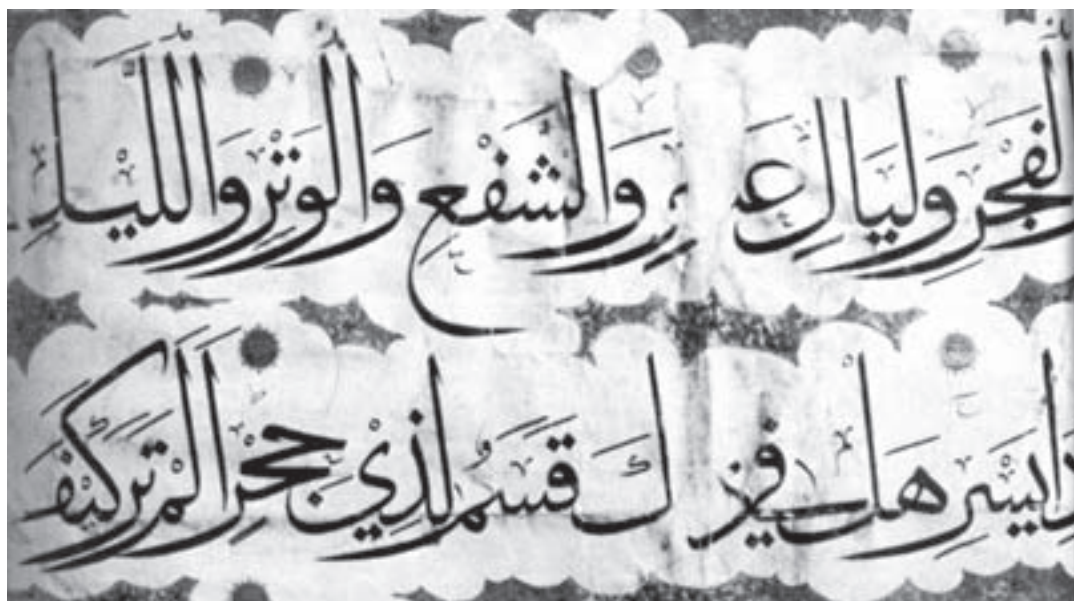 الْفَجْرِ وَلَيَالٍ عَشْرٍ وَالشَّفْعِ وَالْوَتْرِ وَاللَّيْلِ
يَسْرِ هَلْ فِي ذَلِكَ قَسَمٌ لِذِيْ حِجْرٍ اَلَمْ تَرَ كَيْفَ